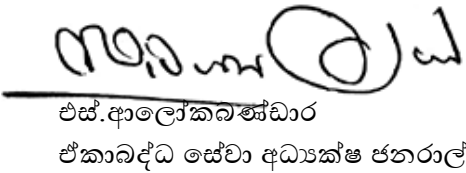 එස්.ආලෝකබණ්ඩාර
ඒකාබද්ධ සේවා අධ්‍යක්ෂ ජනරාල්